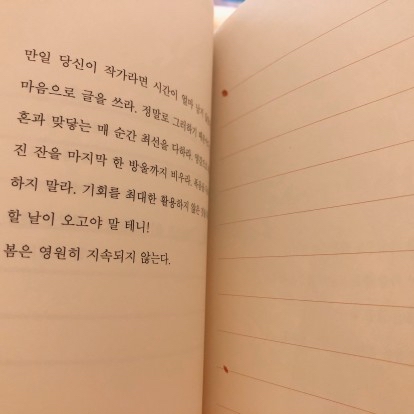 만일 당신이 작가라면 시간이 얼마 남지
마음으로 글을 쓰라. 정말로 그러하기 때문이다
혼과 맞닿는 매 순간 최선을 다하라.
진 잔을 마지막 한 방울까지 비우라.
하지 말라. 기회를 최대한 활용하지 않은
할 날이 오고야 말 테니!
봄은 영원히 지속되지 않는다.